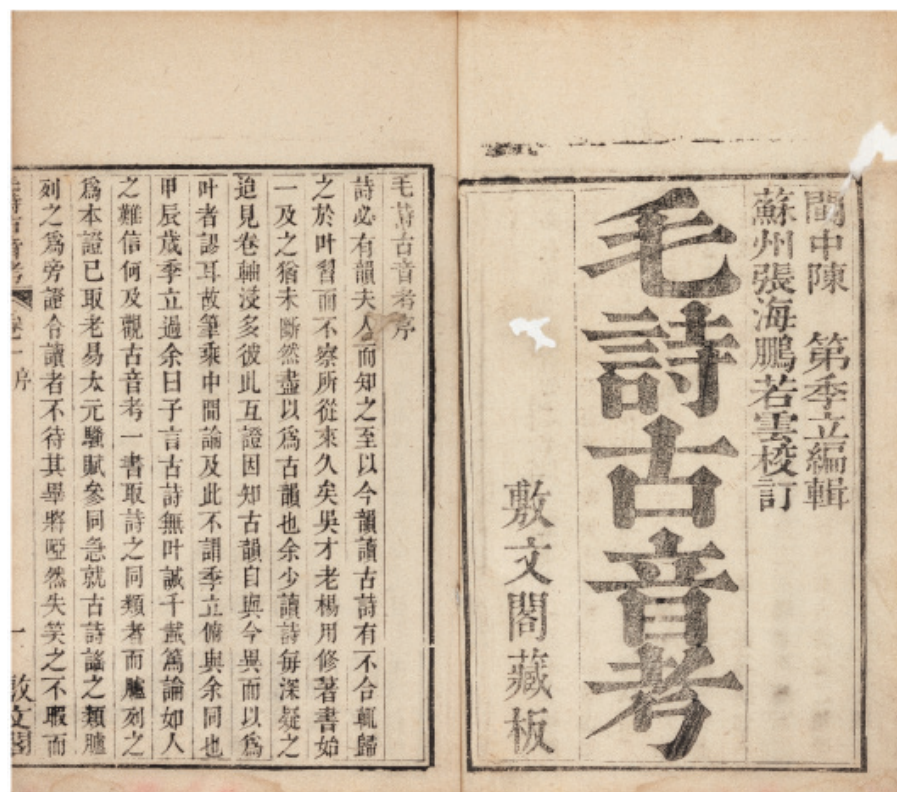 閩中陳 第季立編輯
蘇州張海鵬若雲校訂
毛詩古音考
敷文閣藏板
毛詩古音考序
詩必有韻夫人而知之至以今韻讀古詩有不合輒歸
之於叶習而不察所從來久矣吳才老楊用修著書始
一及之猶未斷然盡以爲古韻也余少讀詩每深疑之
迨見卷軸浸多彼此互證因知古韻自與今異而以爲
叶者謬耳故筆乘中間論及此不謂季立俯與余同也
甲辰歲季立過余曰子言古詩無叶誠千載篤論如人
之難信何及觀古音考一書取詩之同類者而臚列之
爲本證已取老易太元騷賦參同急就古詩謠之類臚
列之爲旁證令讀者不待其畢將啞然失笑之不暇而
毛詩古音考 卷一序 一 敷文閣